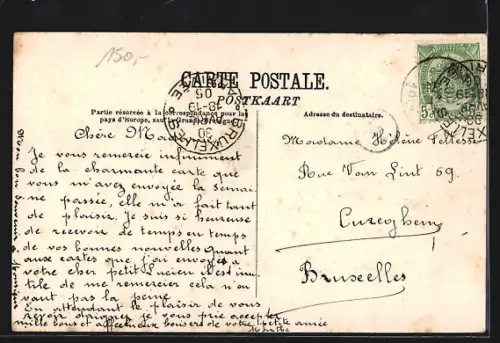 150,-
CARTE POSTALE.
POSTKAART
Partie réservée à la correspondance pour les
pays d'Europe, sauf la
Adresse du destinataire.
Chère
Je vous remercie infiniment
de la charmante carte que
vous m'avez envoyée la semai
ne passée, elle m'a fait tant
de plaisir. Je suis si heureuse
de recevoir de temps en temps
de vos bonnes nouvelles. Quant
aux cartes que j'ai envoyés à
votre cher petit Lucien c'est inu
tile de me remercier cela n'en
vaut pas la peine.
En attendant le plaisir de vous
revoir daignez je vous prie accepter
mille bons et affectueux baisers de votre petite amie
Mon bon souvenir à Monsieur
Madame Hélène
Rue Van Lint 69.
Cureghem
Bruxelles
BRUXELLES
30
18-19
05